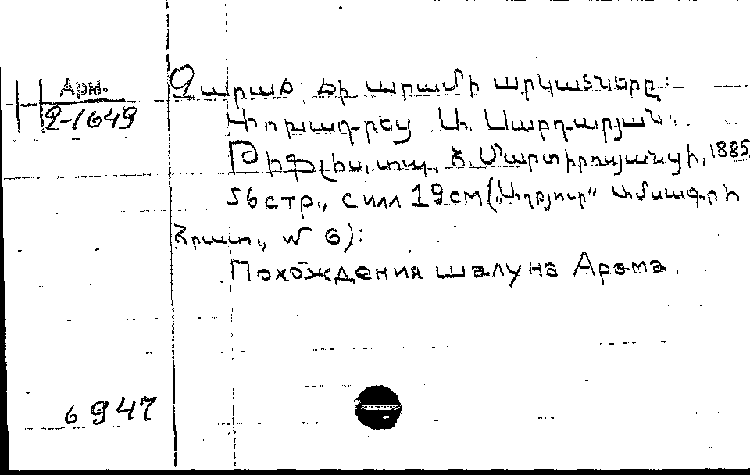 Арм.
2-1649
Չարաճճի Արամի արկածները:
Փոխադրեց Ա. Սարդարյան:
Թիֆլիս, տպ. Մ. Մարտիրոսյանցի, 1885
56 стр., с илл 19 см („Աղբյուր“ ամսագրի
հրատ., № 6):
Похождения шалуна Арама.
6947